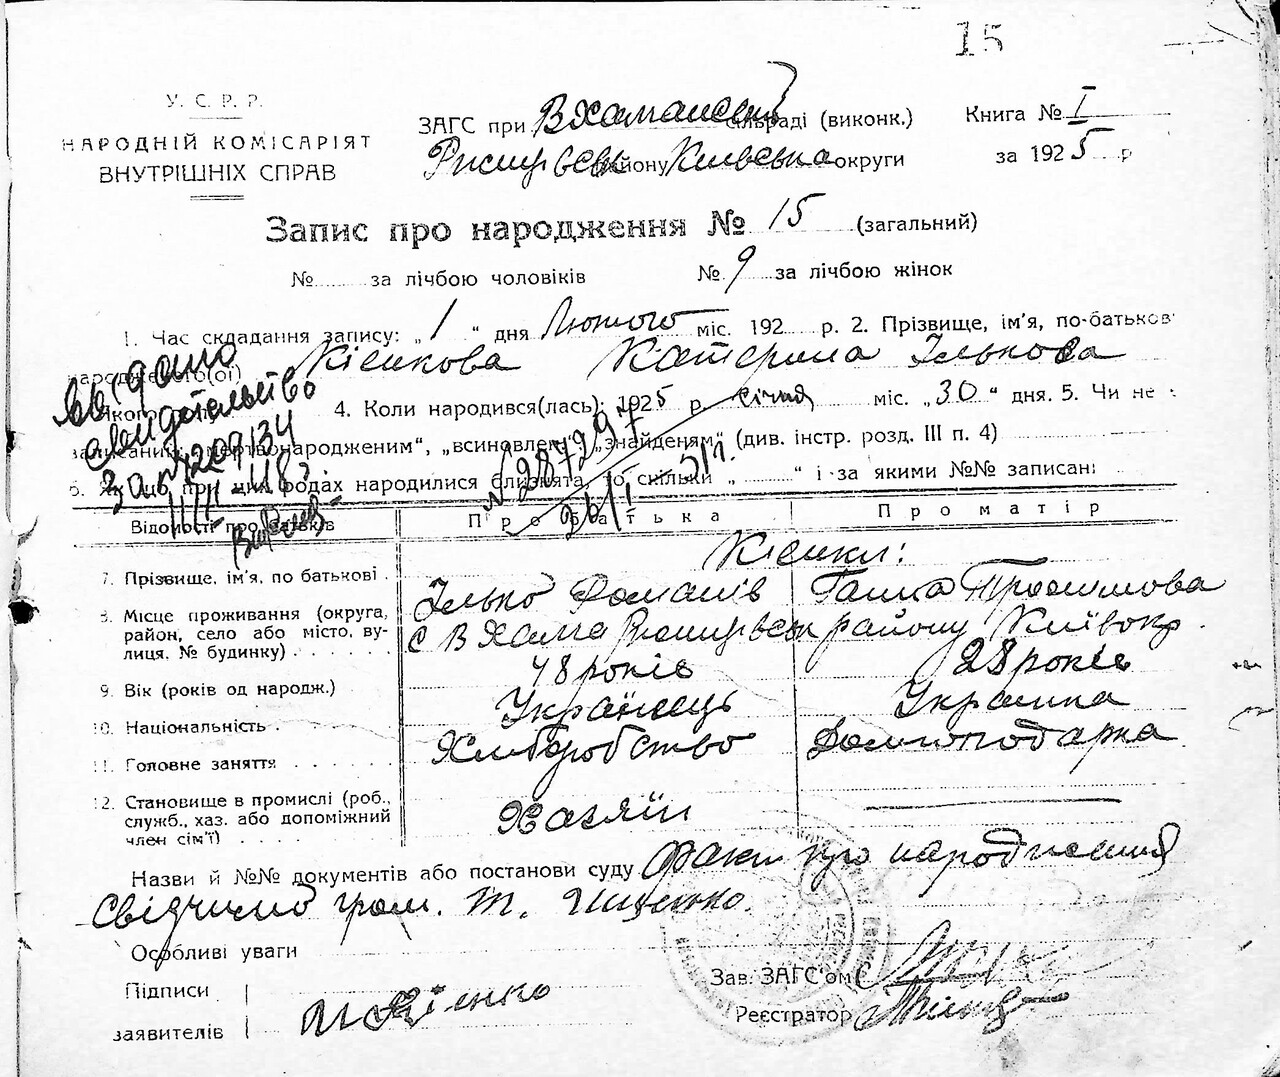 15
У. С. Р. Р.
НАРОДНІЙ КОМІСАРІЯТ
ВНУТРІШНІХ СПРАВ
ЗАГС при сільраді (виконк.) Книга № I
району Київська округи за 1925 р
Запис про народження № 15 (загальний)
№ за лічбою чоловіків № 9 за лічбою жінок
1. Час складання запису: „1“ дня Лютого міс. 192 р. 2. Прізвище, ім'я, по-батьков
народженого(ої) Катерина Ількова
4. Коли народився(лась): 1925 р січня міс. „30“ дня. 5. Чи не
записаний: „мертвонародженим“, „всиновлен“, „знайденям“ (див. інстр. розд. III п. 4)
6. Якщо при цих родах народилися близнята, то скільки „ “ і за якими №№ записані
видано
свидотельство
за № 209134
N 287297
Відомості про батьків Про батька Про матір
7. Прізвище, ім'я, по батькові Ілько Романів Ганна
8. Місце проживання (округа, район, село або місто, вулиця, № будинку) району Київ окр.
9. Вік (років од народж.) 48 років 28 років
10. Національність Українець Украинка
11. Головне заняття Хліборобство Домогоподарка
12. Становище в промислі (роб., служб., хаз. або допоміжний член сім'ї) Хазяїн
Назви й №№ документів або постанови суду Факт про народження
свідчимо гром. Т. Іищенко.
Особливі уваги
Підписи
заявителів
Зав. ЗАГС'ом
Реєстратор